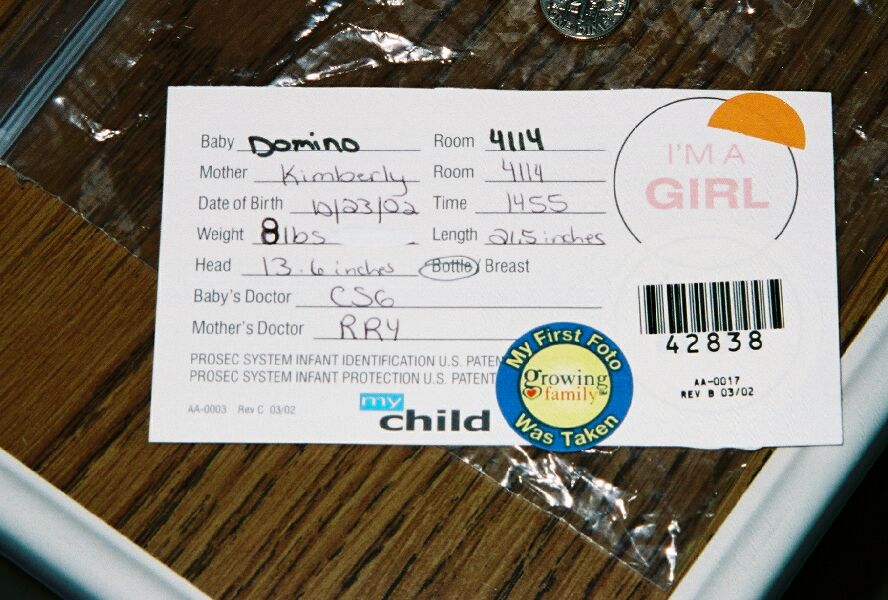 Baby Domino Room 4114
Mother Kimberly Room 4114
Date of Birth 10/23/02 Time 1455
Weight 8lbs Length 21.5 inches
Head 13.6 inches Bottle/Breast
Baby's Doctor CSG
Mother's Doctor RRY
PROSEC SYSTEM INFANT IDENTIFICATION U.S. PATEN
PROSEC SYSTEM INFANT PROTECTION U.S. PATENT
AA-0003 Rev C 03/02
my
child
My First Foto
growing
family
Was Taken
I'M A
GIRL
42838
AA-0017
REV B 03/02